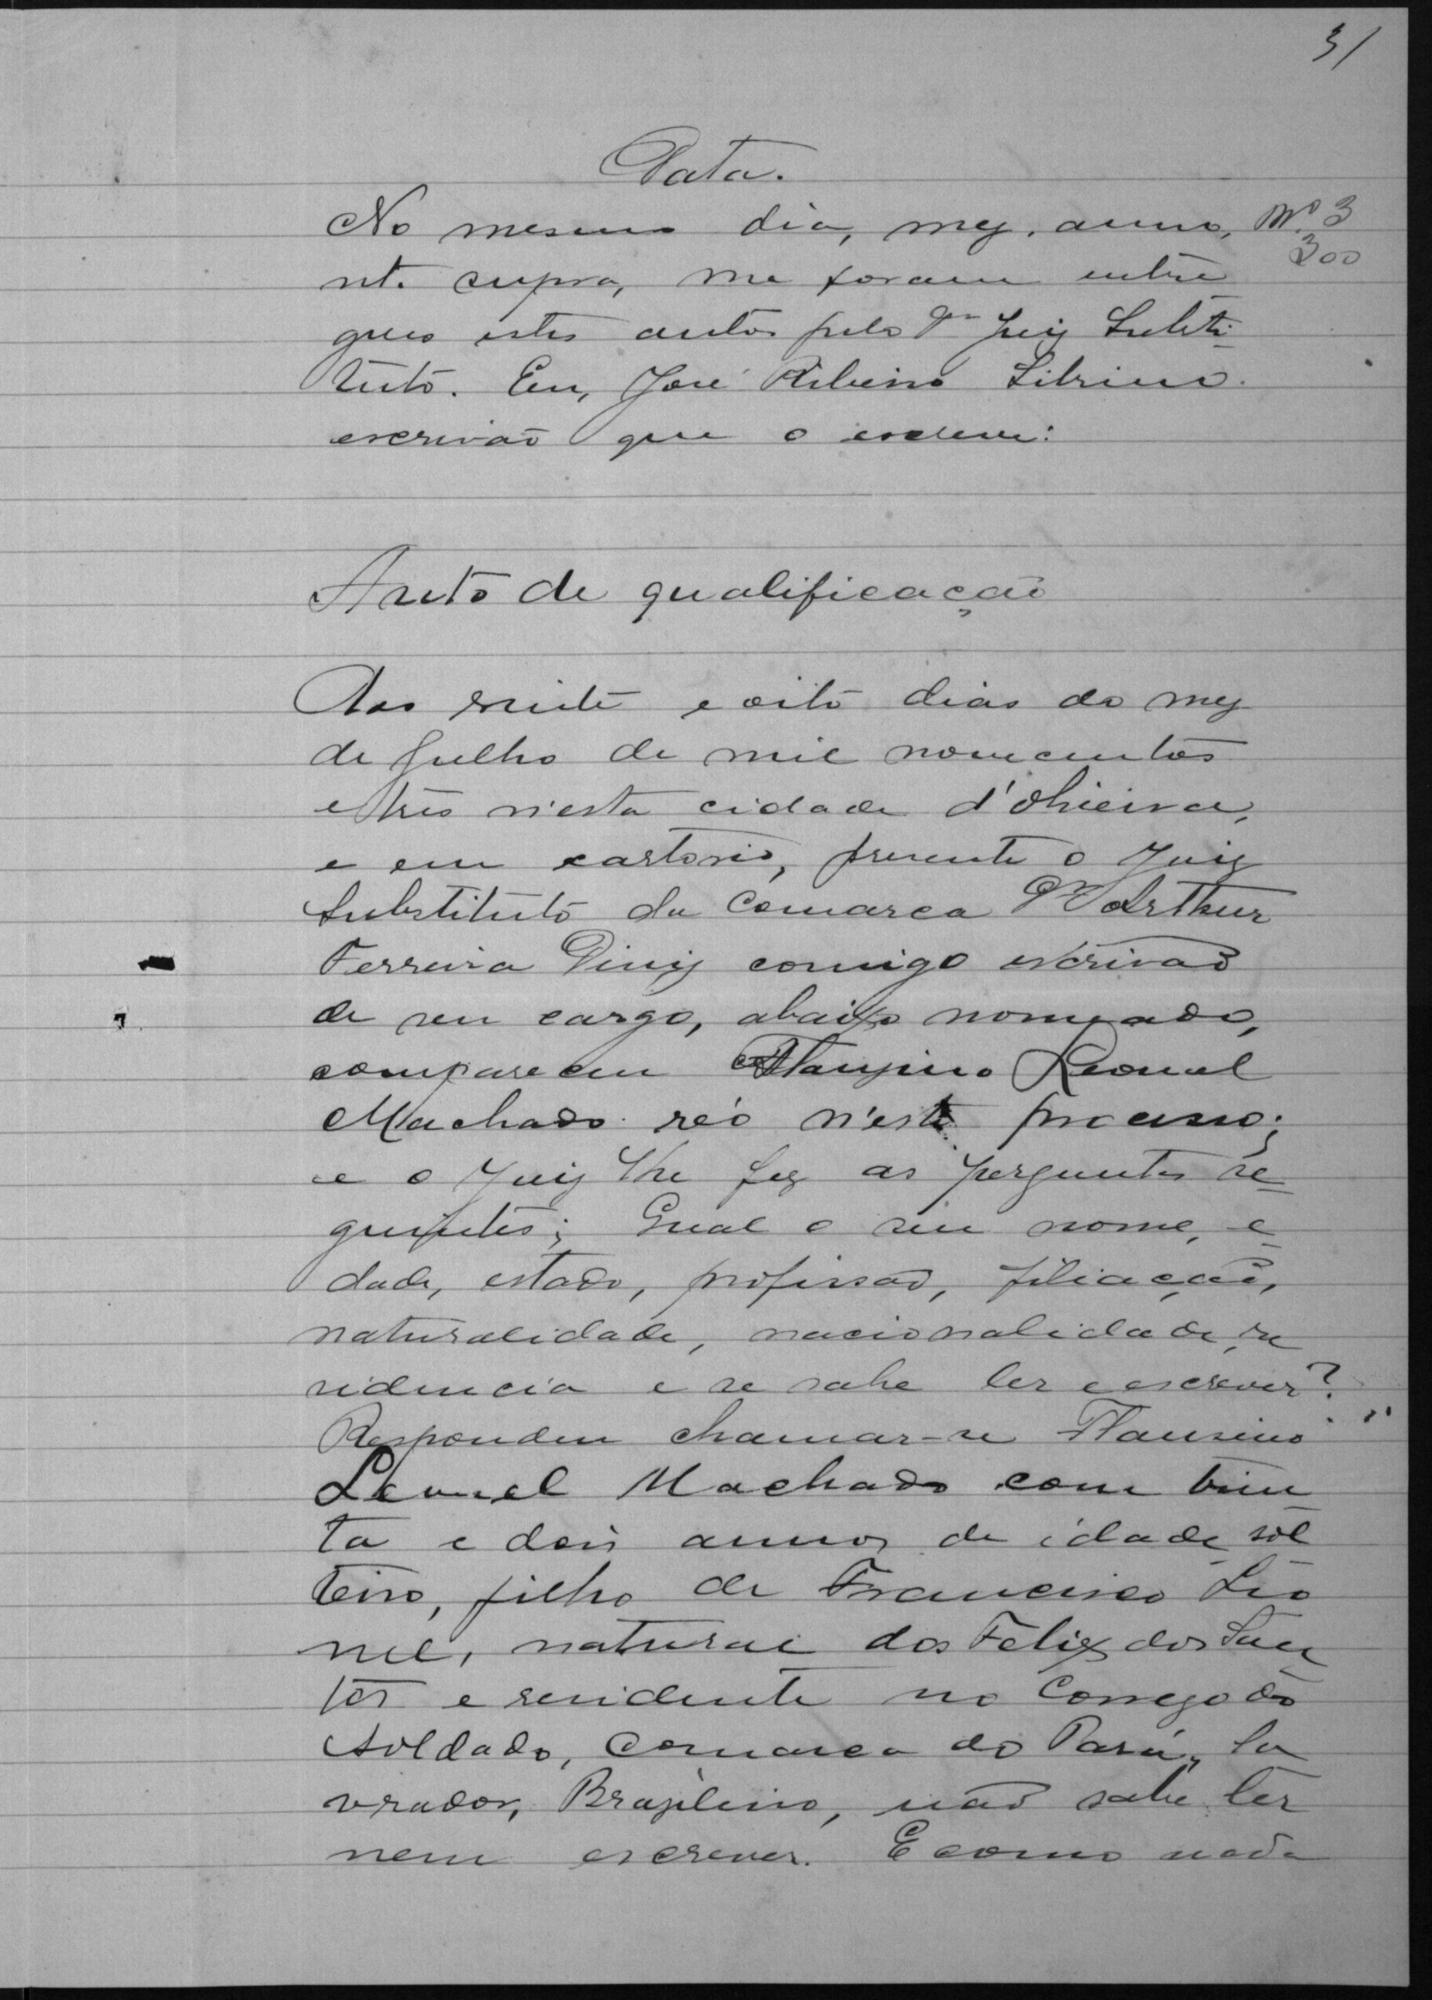 31
Data.
No mesmo dia, mez, anno, Nº 3
ut. supra, me foram entre 300
gues estes autos pelo Dr Juiz Substi-
tuto. Eu, José Ribeiro
escrivão que o escrevi:
Auto de qualificação
Aos vinte e oito dias do mez
de Julho de mil novecentos
e tres n'esta cidade d'Oliveira,
e em cartorio, presente o Juiz
Substituto da Comarca Dr Arthur
Ferreira Diniz comigo escrivão
de seu cargo, abaixo nomeado,
compareceu Flausino Leonel
Machado réo n'este processo;
e o Juiz lhe fez as perguntas se-
guintes; Qual o seu nome, e-
dade, estado, profissão, filiação,
naturalidade, nacionalidade, re
sidencia e se sabe ler e escrever?
Respondeu chamar-se Flausino
Leonel Machado com trin
ta e dois annos de idade, sol
teiro, filho de Francisco Leo
nel, natural dos Felix dos San
tos e residente no Corrego do
Soldado, Comarca do Pará, la
vrador, Brazileiro, não sabe ler
nem escrever. E como nada